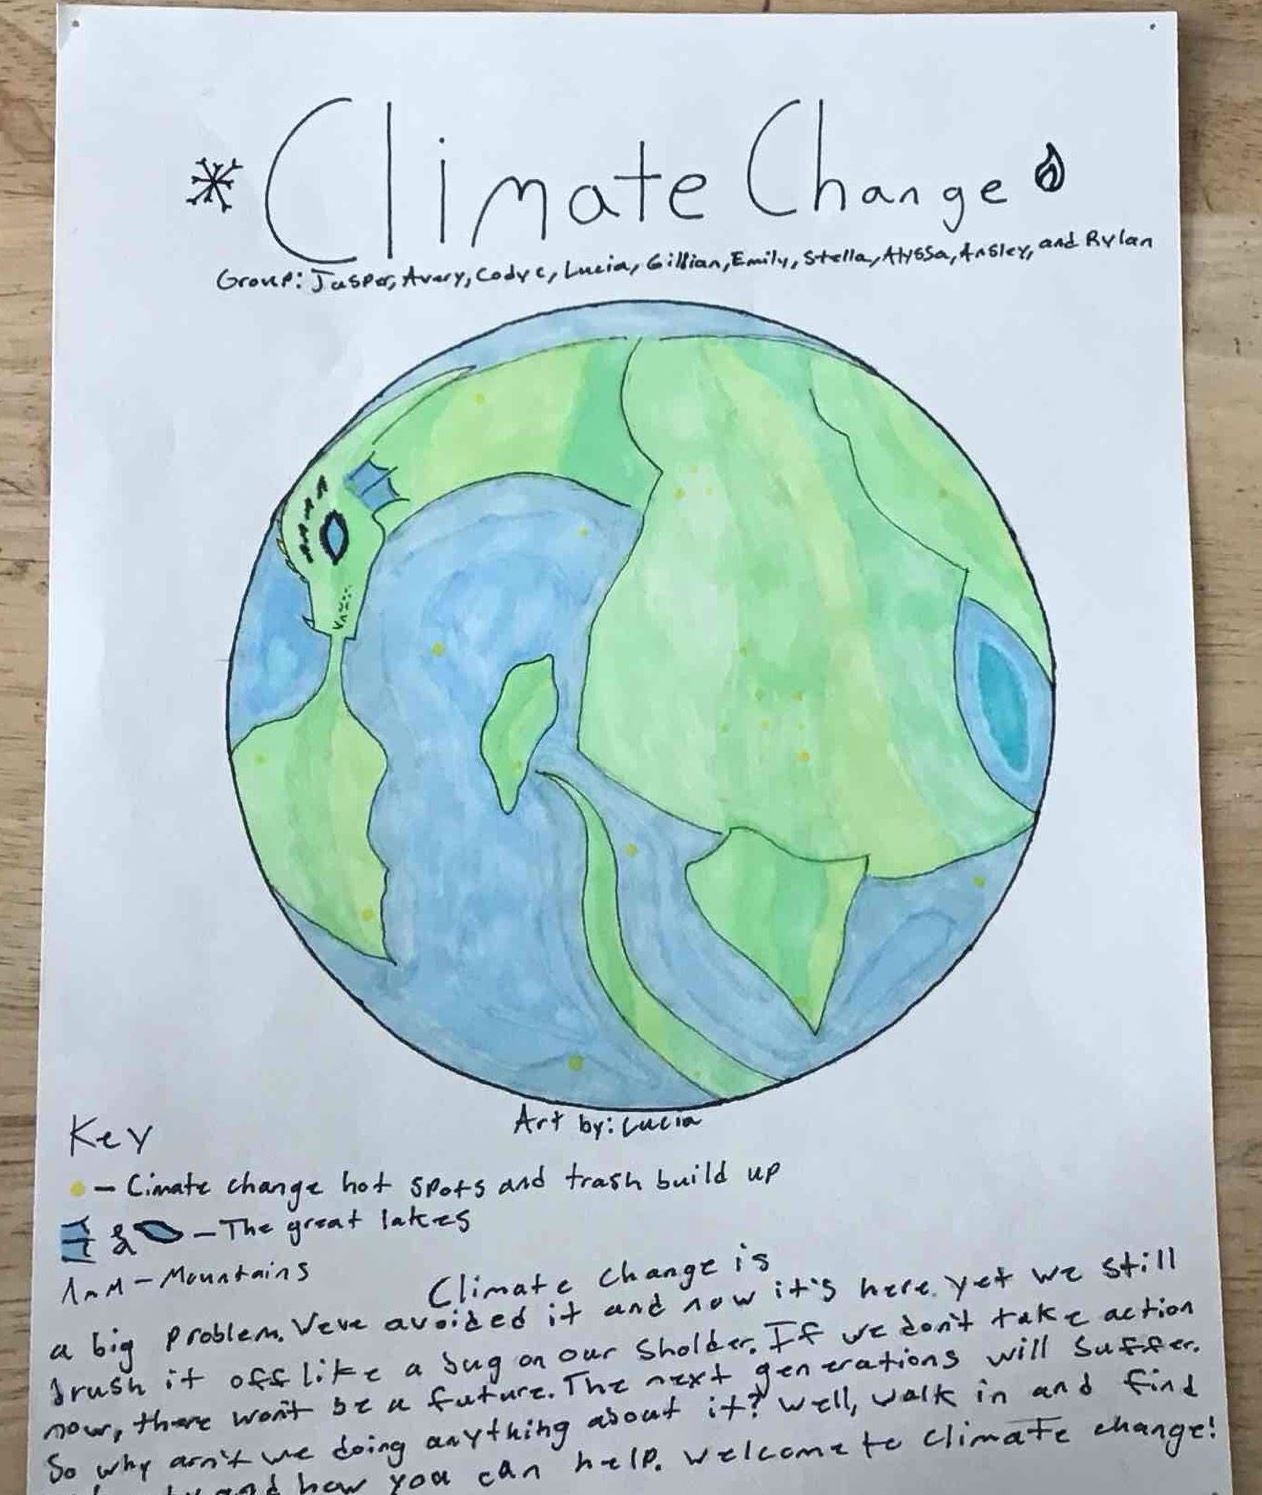 Climate Change
Group: Jasper, Avery, Cody C, Lucia, Gillian, Emily, Stella, Alyssa, Ansley, and Rylan
Art by: Lucia
Key
- Cimate change hot spots and trash build up
& - The great lakes
- Mountains
Climate change is
a big problem. Veve avoided it and now it's here. yet we still
brush it off like a bug on our sholder. If we don't take action
now, there won't be a future. The next generations will suffer.
So why arn't we doing anything about it? Well, walk in and find
and how you can help. Welcome to climate change!